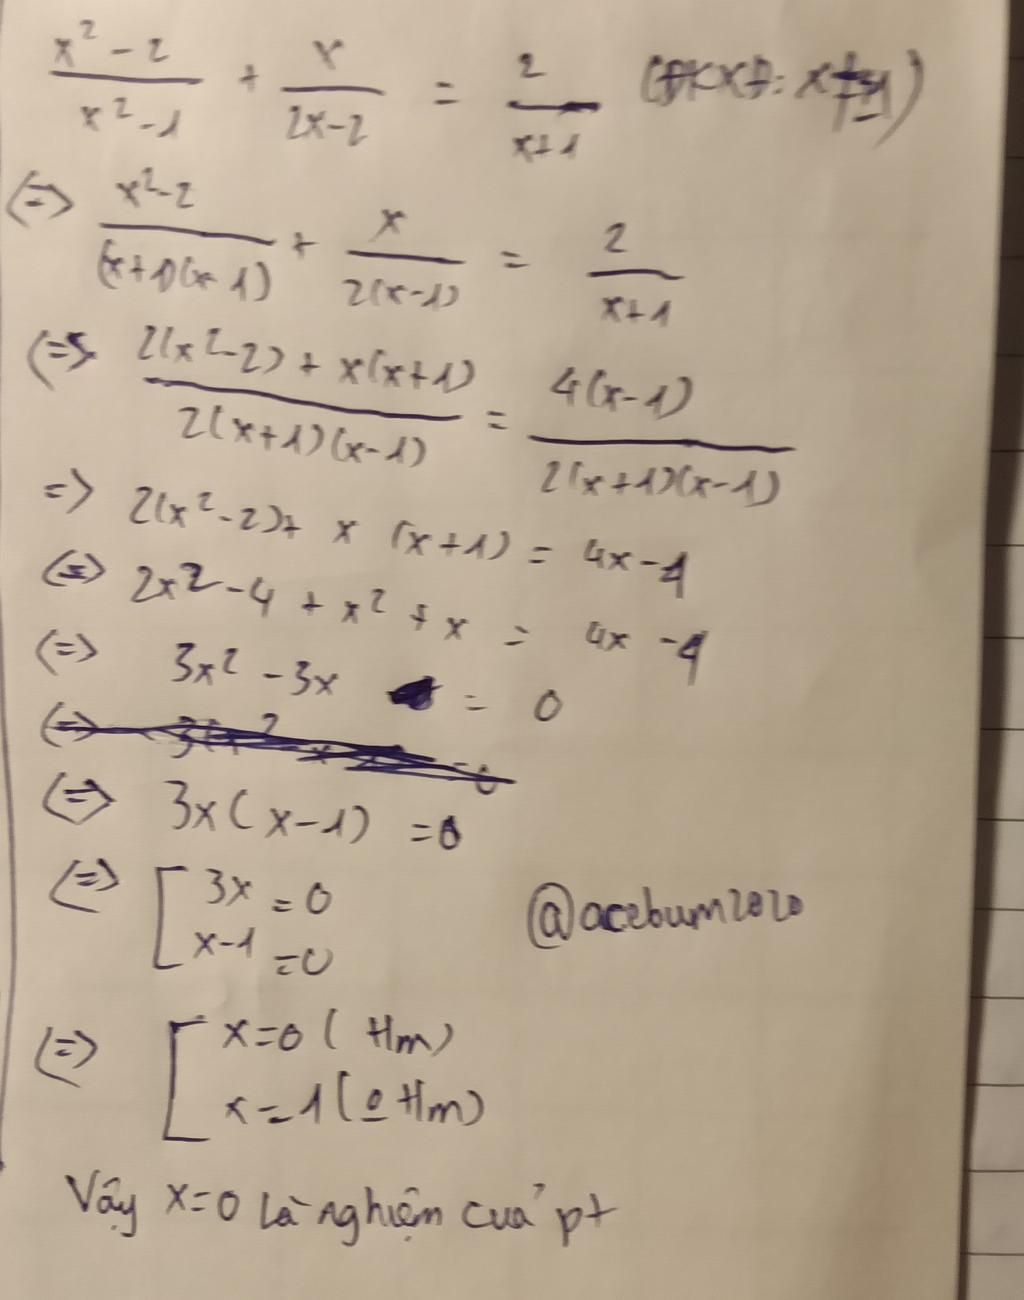 (x²-2)/(x²-1) + x/(2x-2) = 2/(x+1) (ĐKXĐ: x≠±1)
<=> (x²-2)/((x+1)(x-1)) + x/(2(x-1)) = 2/(x+1)
<=> (2(x²-2)+x(x+1))/(2(x+1)(x-1)) = (4(x-1))/(2(x+1)(x-1))
=> 2(x²-2)+ x (x+1) = 4x-4
<=> 2x²-4 + x² + x = 4x -4
<=> 3x² -3x = 0
<=> 3x(x-1) =0
<=> [ 3x = 0
x-1 =0
@acebum2020
<=> [ x=0 ( t/m)
x=1(0 t/m)
Vậy x=0 là nghiệm của pt